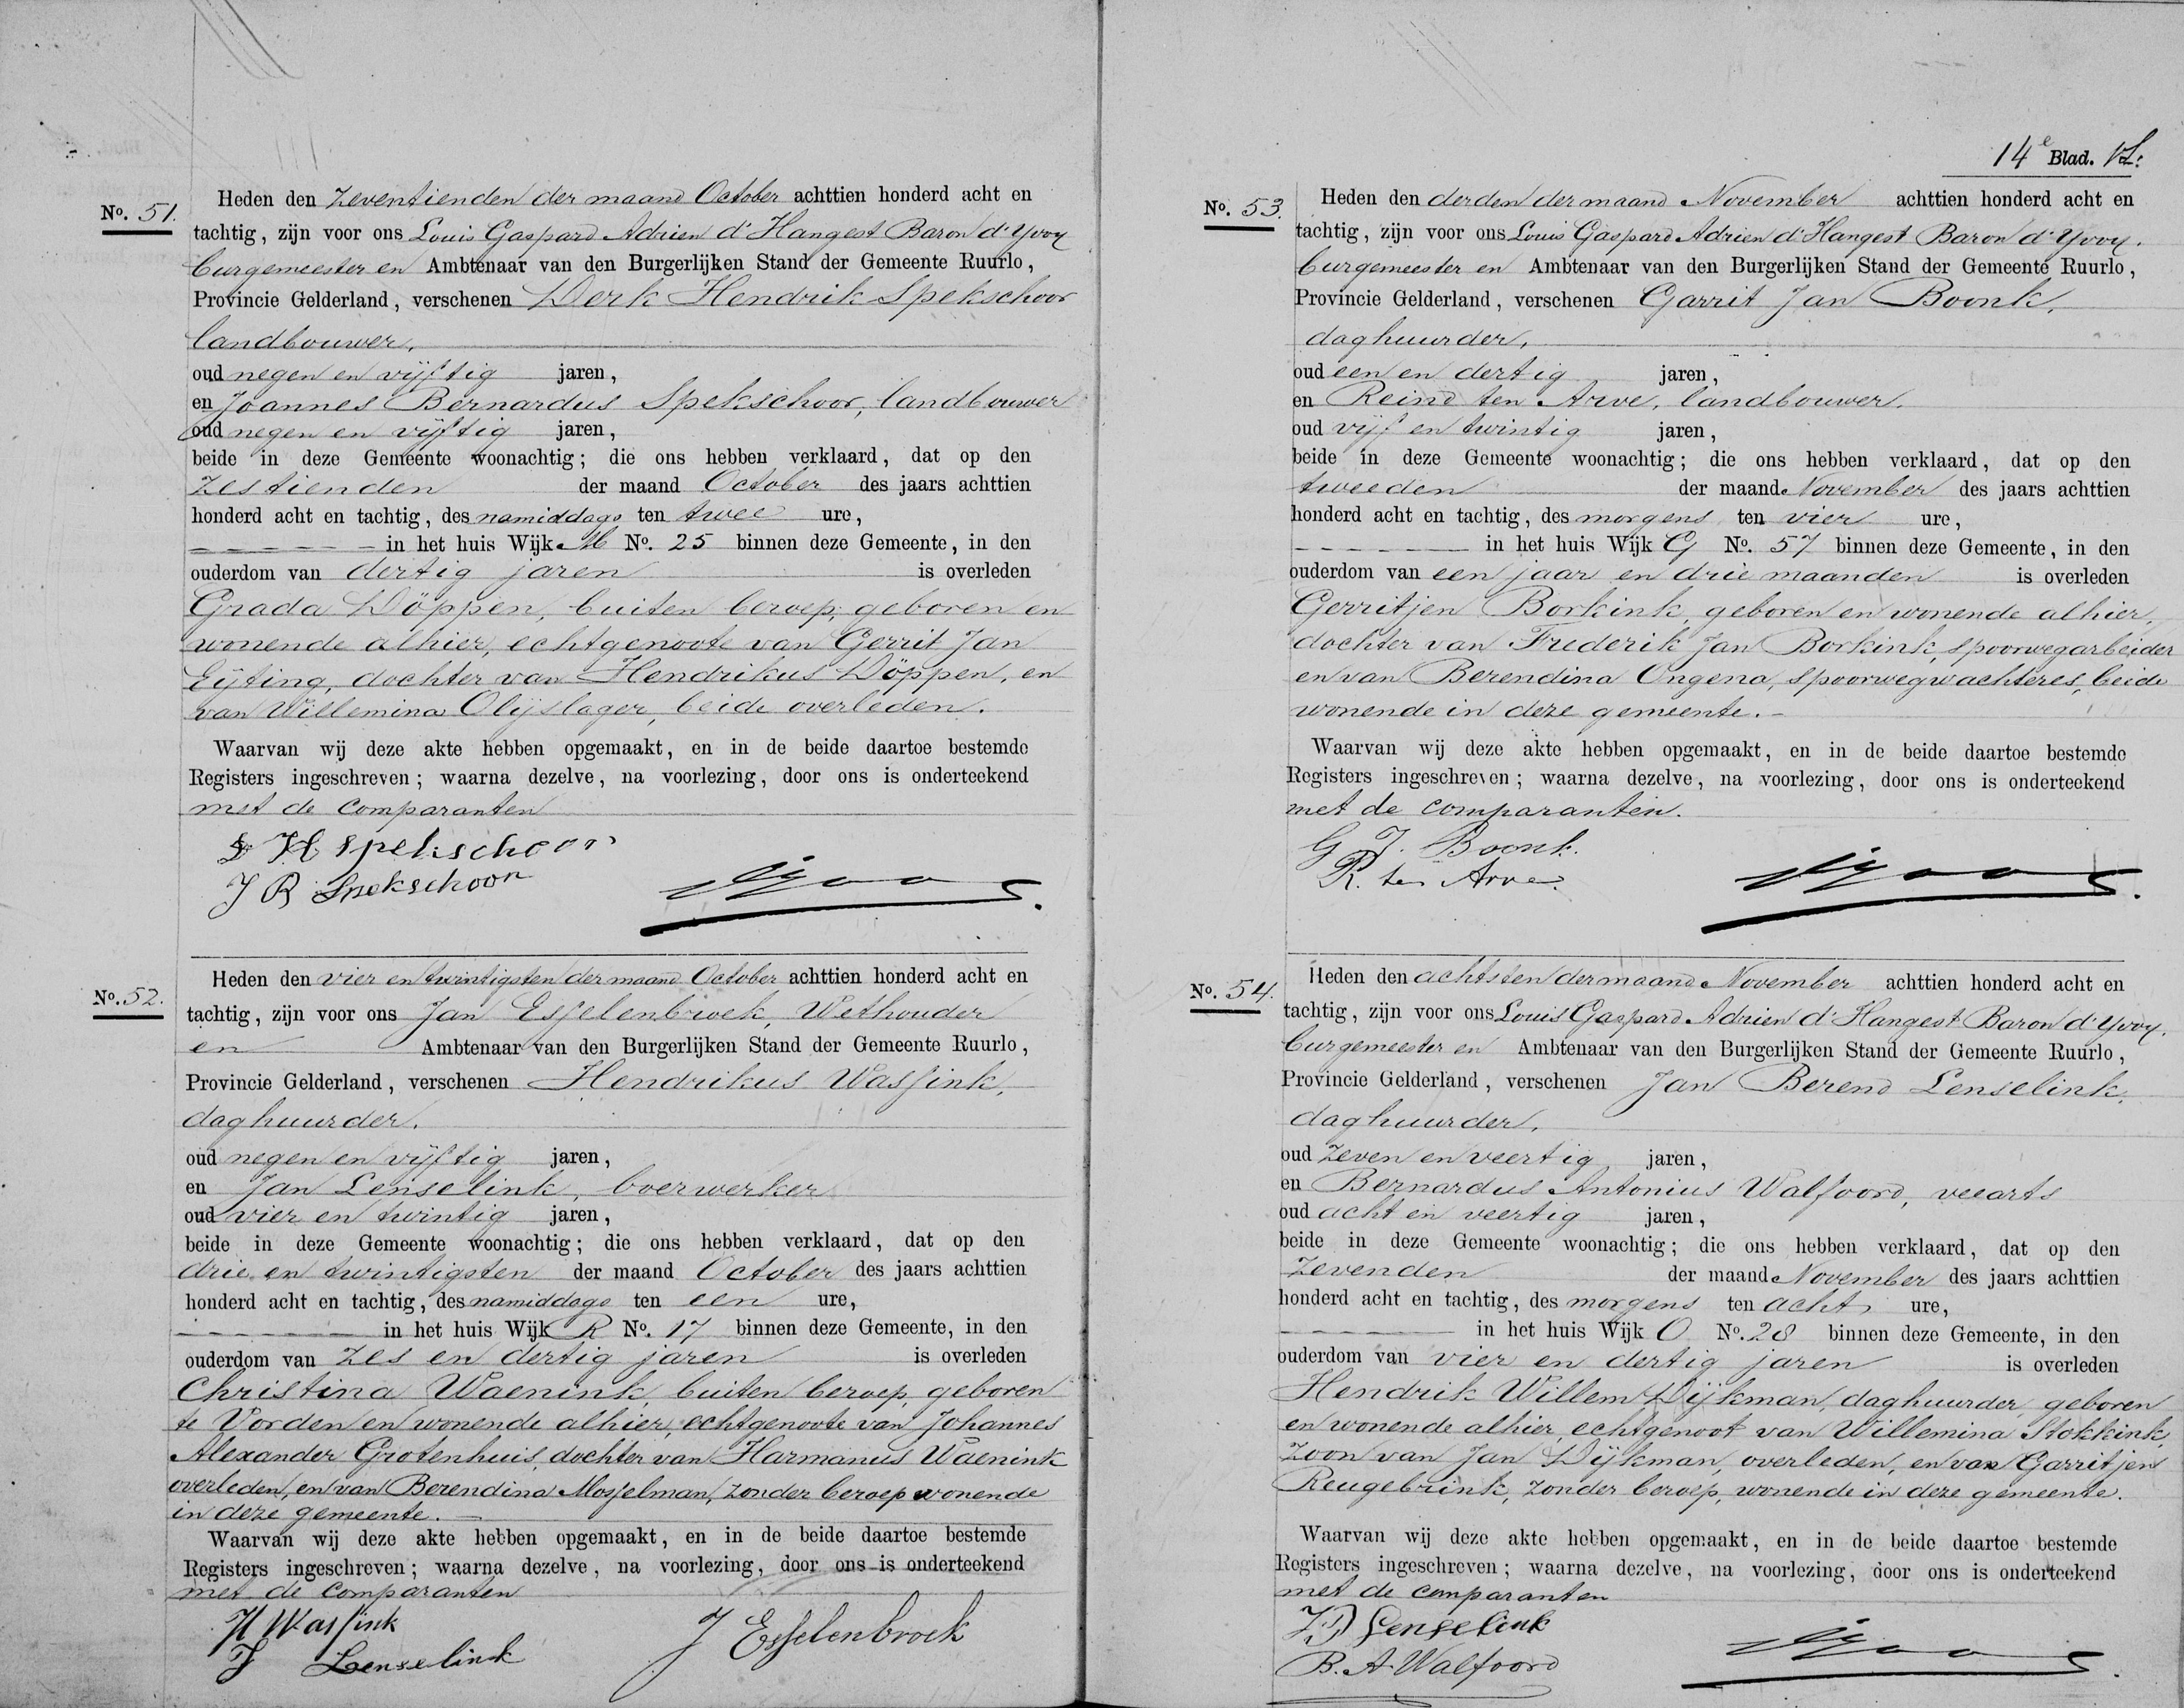 No. 51.
Heden den zeventienden der maand October achttien honderd acht en
tachtig, zijn voor ons Louis Gaspard Adrien d'Hangest Baron d'Yvoy
burgemeester en Ambtenaar van den Burgerlijken Stand der Gemeente Ruurlo,
Provincie Gelderland, verschenen Derk Hendrik Spekschoor
landbouwer,
oud negen en vijftig jaren,
en Joannes Bernardus Spekschoor, landbouwer
oud negen en vijftig jaren,
beide in deze Gemeente woonachtig; die ons hebben verklaard, dat op den
zestienden der maand October des jaars achttien
honderd acht en tachtig, des namiddags ten twee ure,
in het huis Wijk M No. 25 binnen deze Gemeente, in den
ouderdom van dertig jaren is overleden
Grada Döppen, buiten beroep, geboren en
wonende alhier, echtgenoote van Gerrit Jan
Eijting, dochter van Hendrikus Döppen, en
van Willemina Olijslager, beide overleden.
Waarvan wij deze akte hebben opgemaakt, en in de beide daartoe bestemde
Registers ingeschreven; waarna dezelve, na voorlezing, door ons is onderteekend
met de comparanten
D H Spekschoor
J B Spekschoor
No. 52.
Heden den vier en twintigsten der maand October achttien honderd acht en
tachtig, zijn voor ons Jan Esselenbroek, Wethouder
en Ambtenaar van den Burgerlijken Stand der Gemeente Ruurlo,
Provincie Gelderland, verschenen Hendrikus Wassink,
daghuurder.
oud negen en vijftig jaren,
en Jan Lenselink, boerwerker
oud vier en twintig jaren,
beide in deze Gemeente woonachtig; die ons hebben verklaard, dat op den
drie en twintigsten der maand October des jaars achttien
honderd acht en tachtig, des namiddags ten een ure,
in het huis Wijk R No. 17 binnen deze Gemeente, in den
ouderdom van zes en dertig jaren is overleden
Christina Waenink, buiten beroep, geboren
te Vorden en wonende alhier, echtgenoote van Johannes
Alexander Grotenhuis, dochter van Harmanus Waenink
overleden, en van Berendina Mosselman, zonder beroep wonende
in deze gemeente.
Waarvan wij deze akte hebben opgemaakt, en in de beide daartoe bestemde
Registers ingeschreven; waarna dezelve, na voorlezing, door ons is onderteekend
met de comparanten
H Wassink
J Lenselink
J Esselenbroek
14e Blad.
No. 53.
Heden den derden der maand November achttien honderd acht en
tachtig, zijn voor ons Louis Gaspard Adrien d'Hangest Baron d'Yvoy.
burgemeester en Ambtenaar van den Burgerlijken Stand der Gemeente Ruurlo,
Provincie Gelderland, verschenen Garrit Jan Boonk,
daghuurder,
oud een en dertig jaren,
en Reind ten Arve, landbouwer.
oud vijf en twintig jaren,
beide in deze Gemeente woonachtig; die ons hebben verklaard, dat op den
tweeden der maand November des jaars achttien
honderd acht en tachtig, des morgens ten vier ure,
in het huis Wijk G No. 57 binnen deze Gemeente, in den
ouderdom van een jaar en drie maanden is overleden
Gerritjen Borkink, geboren en wonende alhier,
dochter van Frederik Jan Borkink, spoorwegarbeider
en van Berendina Ongena, spoorwegwachteres, beide
wonende in deze gemeente.
Waarvan wij deze akte hebben opgemaakt, en in de beide daartoe bestemde
Registers ingeschreven; waarna dezelve, na voorlezing, door ons is onderteekend
met de comparanten.
G J. Boonk.
R. ten Arve.
No. 54.
Heden den achtsten der maand November achttien honderd acht en
tachtig, zijn voor ons Louis Gaspard Adrien d'Hangest Baron d'Yvoy.
burgemeester en Ambtenaar van den Burgerlijken Stand der Gemeente Ruurlo,
Provincie Gelderland, verschenen Jan Berend Lenselink,
daghuurder,
oud zeven en veertig jaren,
en Bernardus Antonius Walfoord, veearts
oud acht en veertig jaren,
beide in deze Gemeente woonachtig; die ons hebben verklaard, dat op den
zevenden der maand November des jaars achttien
honderd acht en tachtig, des morgens ten acht ure,
in het huis Wijk O No. 28 binnen deze Gemeente, in den
ouderdom van vier en dertig jaren is overleden
Hendrik Willem Dijkman, daghuurder, geboren
en wonende alhier, echtgenoot van Willemina Stokkink,
zoon van Jan Dijkman, overleden, en van Garritjen
Reugebrink, zonder beroep, wonende in deze gemeente.
Waarvan wij deze akte hebben opgemaakt, en in de beide daartoe bestemde
Registers ingeschreven; waarna dezelve, na voorlezing, door ons is onderteekend
met de comparanten
J B Lenselink
B. A. Walfoord